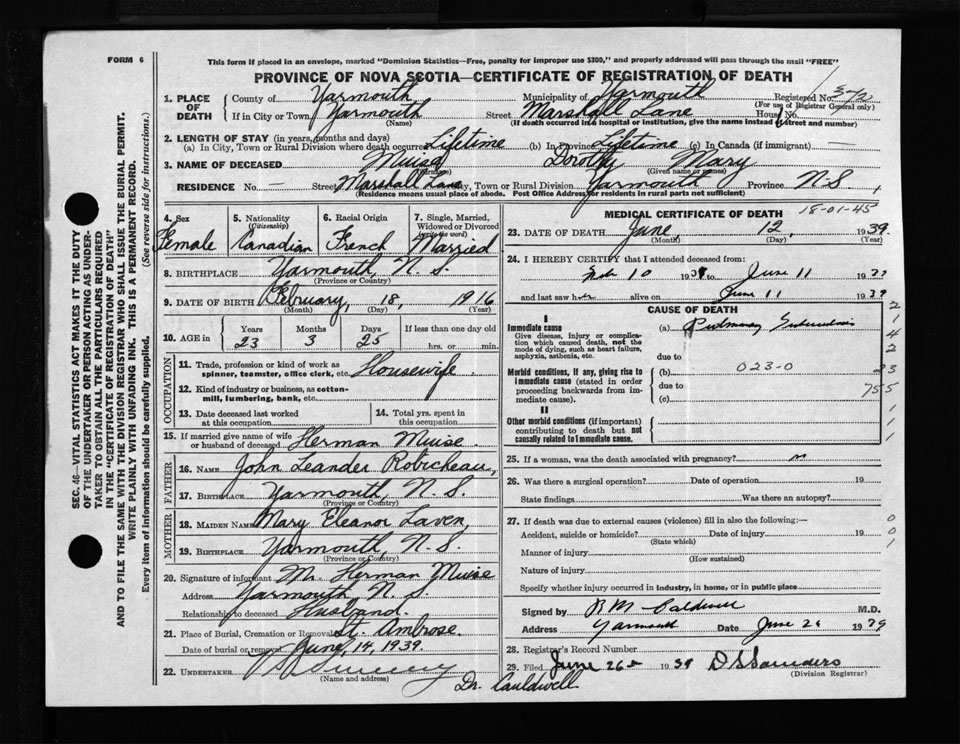 FORM 6
This form if placed in an envelope, marked "Dominion Statistics—Free, penalty for improper use $300," and properly addressed will pass through the mail "FREE"
PROVINCE OF NOVA SCOTIA—CERTIFICATE OF REGISTRATION OF DEATH
1. PLACE OF DEATH
County of Yarmouth Municipality of Yarmouth Registered No.
(For use of Registrar General only)
If in City or Town Yarmouth Street Marshall Lane House No.
(Name) (If death occurred in a hospital or institution, give the name instead of street and number)
2. LENGTH OF STAY (in years, months and days)
(a) In City, Town or Rural Division where death occurred Lifetime (b) In Province Lifetime (c) In Canada (if immigrant) —
3. NAME OF DECEASED Muise Dorothy Mary
(Surname) (Given name or names)
RESIDENCE No. — Street Marshall Lane City, Town or Rural Division Yarmouth Province N.S.
(Residence means usual place of abode. Post Office Address for residents in rural parts not sufficient)
4. Sex
Female
5. Nationality
(Citizenship)
Canadian
6. Racial Origin
French
7. Single, Married, Widowed or Divorced
(write the word)
Married
8. BIRTHPLACE Yarmouth, N.S.
(Province or Country)
9. DATE OF BIRTH February, 18, 1916
(Month) (Day) (Year)
10. AGE in
Years Months Days If less than one day old
23 3 25 hrs. or min.
OCCUPATION
11. Trade, profession or kind of work as spinner, teamster, office clerk, etc. Housewife.
12. Kind of industry or business, as cotton-mill, lumbering, bank, etc.
13. Date deceased last worked at this occupation
14. Total yrs. spent in this occupation
15. If married give name of wife or husband of deceased Herman Muise.
FATHER
16. NAME John Leander Robicheau,
17. BIRTHPLACE Yarmouth, N.S.
(Province or Country)
MOTHER
18. MAIDEN NAME Mary Eleanor Laven,
19. BIRTHPLACE Yarmouth, N.S.
(Province or Country)
20. Signature of informant Mr. Herman Muise
Address Yarmouth N.S.
Relationship to deceased Husband.
21. Place of Burial, Cremation or Removal St. Ambrose.
Date of burial or removal June, 14, 1939.
22. UNDERTAKER Sweeny
(Name and address)
Dr. Cauldwell
MEDICAL CERTIFICATE OF DEATH
18-01-45
23. DATE OF DEATH June, 12, 1939.
(Month) (Day) (Year)
24. I HEREBY CERTIFY that I attended deceased from:
Feb 10 1939 to June 11 1939
and last saw her alive on June 11 1939
CAUSE OF DEATH
I
Immediate cause
Give disease, injury or complication which caused death, not the mode of dying, such as heart failure, asphyxia, asthenia, etc.
(a) Pulmonary Tuberculosis
due to
Morbid conditions, if any, giving rise to immediate cause (stated in order proceeding backwards from immediate cause).
(b) 023-0
due to
(c)
II
Other morbid conditions (if important) contributing to death but not causally related to immediate cause.
2
1
4
2
23
755
1
1
1
25. If a woman, was the death associated with pregnancy?
26. Was there a surgical operation? Date of operation 19
State findings Was there an autopsy?
27. If death was due to external causes (violence) fill in also the following:—
Accident, suicide or homicide? Date of injury 19
(State which)
Manner of injury
(How sustained)
Nature of injury
Specify whether injury occurred in industry, in home, or in public place
0
0
1
Signed by R M Caldwell M.D.
Address Yarmouth Date June 26 1939
28. Registrar's Record Number
29. Filed June 26th 1939 D S Saunders
(Division Registrar)
SEC. 46—VITAL STATISTICS ACT MAKES IT THE DUTY
OF THE UNDERTAKER OR PERSON ACTING AS UNDER-
TAKER TO OBTAIN ALL THE PARTICULARS REQUIRED
IN THE "CERTIFICATE OF REGISTRATION OF DEATH"
AND TO FILE THE SAME WITH THE DIVISION REGISTRAR WHO SHALL ISSUE THE BURIAL PERMIT.
WRITE PLAINLY WITH UNFADING INK. THIS IS A PERMANENT RECORD.
Every item of information should be carefully supplied. (See reverse side for instructions.)